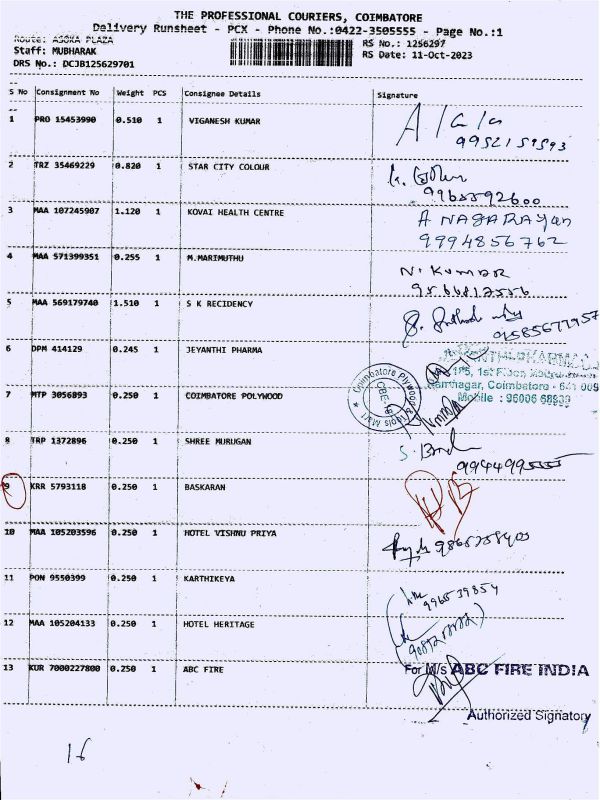 THE PROFESSIONAL COURIERS, COIMBATORE
Delivery Runsheet - PCX - Phone No.:0422-3505555 - Page No.:1
Route: ASOKA PLAZA
RS No.: 1256297
Staff: MUBHARAK
RS Date: 11-Oct-2023
DRS No.: DCJB125629701
S No Consignment No Weight PCS Consignee Details Signature
1 PRO 15453990 0.510 1 VIGANESH KUMAR
2 TRZ 35469229 0.820 1 STAR CITY COLOUR
9965592600
3 MAA 107245907 1.120 1 KOVAI HEALTH CENTRE
A NAGARAYAN
9994856762
4 MAA 571399351 0.255 1 M.MARIMUTHU
N. KUMAR
5 MAA 569179740 1.510 1 S K RECIDENCY
6 DPM 414129 0.245 1 JEYANTHI PHARMA
1st Floor,
Ramnagar, Coimbatore - 641 009
Mobile : 96006 68839
7 MTP 3056893 0.250 1 COIMBATORE POLYWOOD
Coimbatore Plywood &
8 TRP 1372896 0.250 1 SHREE MURUGAN
9 KRR 5793118 0.250 1 BASKARAN
10 MAA 105203596 0.250 1 HOTEL VISHNU PRIYA
11 PON 9550399 0.250 1 KARTHIKEYA
12 MAA 105204133 0.250 1 HOTEL HERITAGE
13 KUR 7000227800 0.250 1 ABC FIRE
For M/s ABC FIRE INDIA
Authorized Signatory
16